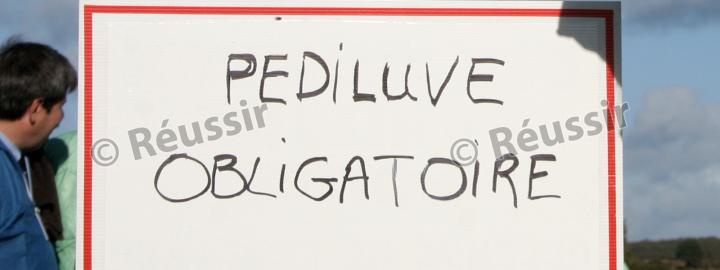 PEDiLUVE
© Réussir © Réussir
OBLiGATOIRE